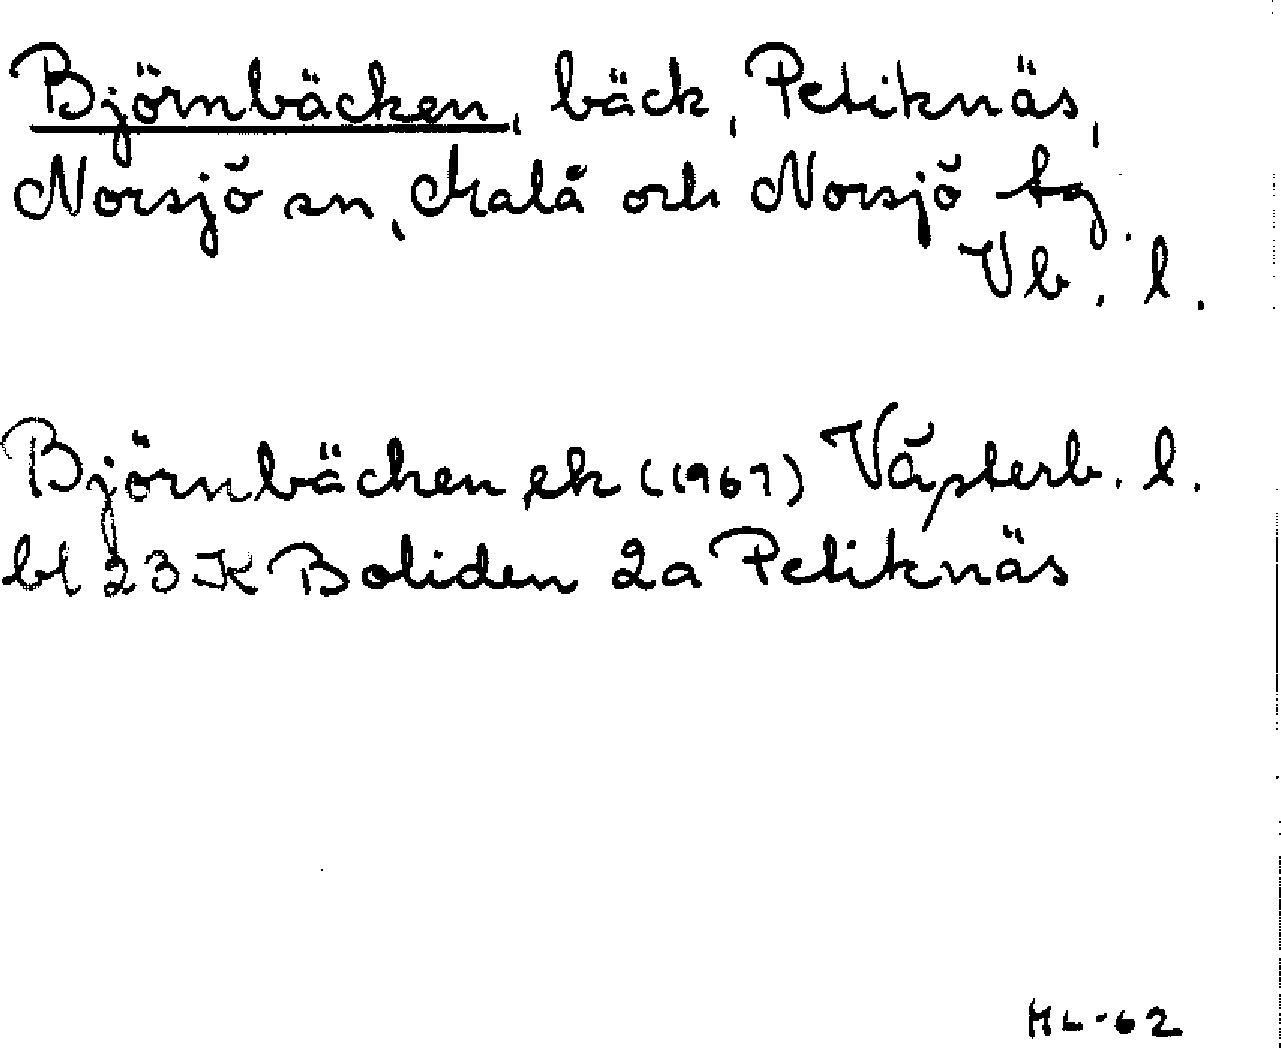 Björnbäcken, bäck, Petiknäs,
Norsjö sn, Malå och Norsjö tg.
Vb. l.
Björnbäcken ek (1961) Västerb. l.
bl 23 K Boliden 2a Petiknäs
HL-62